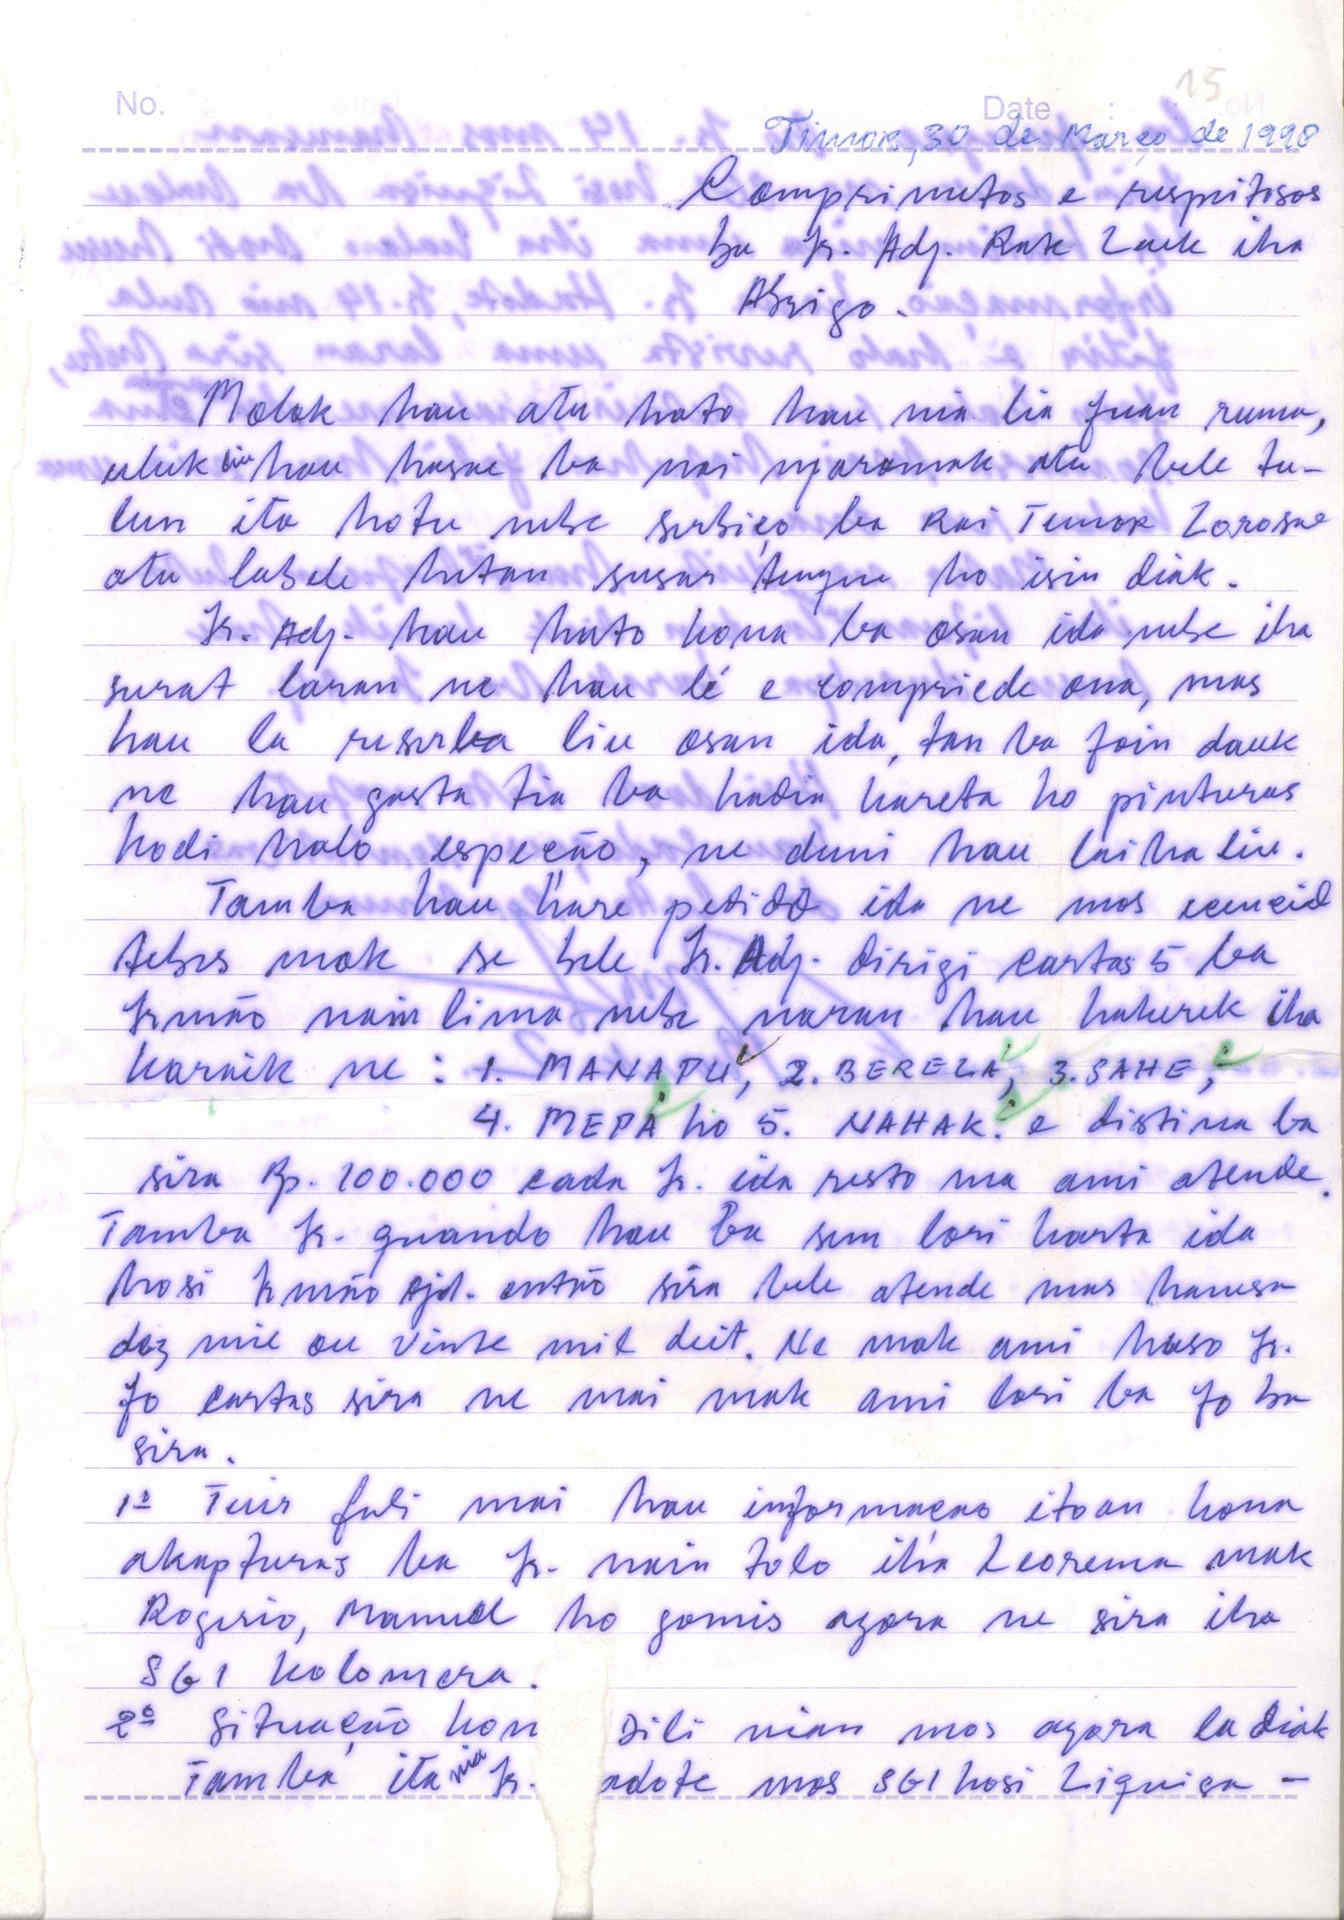 15
No.
Date
Timor, 30 de Março de 1998
Comprimetos e respeitosos
ba Ir. Adj. Rate Laek iha
Abrigo.
Molok hau atu hato hau nia lia fuan ruma,
uluk liu hau hasae ba nai maromak atu bele tu-
lun ita hotu nebe serbiço ba Rai Temor Lorosae
atu labele hetan susar tuque ho isin diak.
Ir. Adj. hau hato kona ba osan ida nebe iha
surat laran ne hau lé e compriede ona, mas
hau la reserba liu osan ida, tan ba foin dauk
ne hau gasta tia ba hadia kareta ho pinturas
hodi halo espeção, ne duni hau laiha liu.
Tamba hau hare pedido ida ne mos
tebes mak se bele Ir. Adj. dirigi cartas 5 ba
Irmão nain lima nebe naran hau hakerek iha
karaik ne : 1. MANAPU, 2. BERELA, 3. SAHE,
4. MEPA ho 5. NAHAK. e distina ba
sira Rp. 100.000 cada Ir. ida resto ma ami atende.
Tamba Ir. quando hau ba sem lori karta ida
hosi Irmão Ajd. então sira bele atende mas hanesa
dez mil ou vinte mil deit. Ne mak ami huso Ir.
fo cartas sira ne mai mak ami lori ba fo ba
sira.
1º Tuir fali mai hau informaçao itoan kona
akapturas ba Ir. nain tolo iha Leorema mak
Rogerio, Manuel ho gomis agora ne sira iha
SGI kolomera.
2º Situação kon Dili nian mos agora ladiak
Tamba ita nia Ir. adote mos SGI hosi Liquiça -